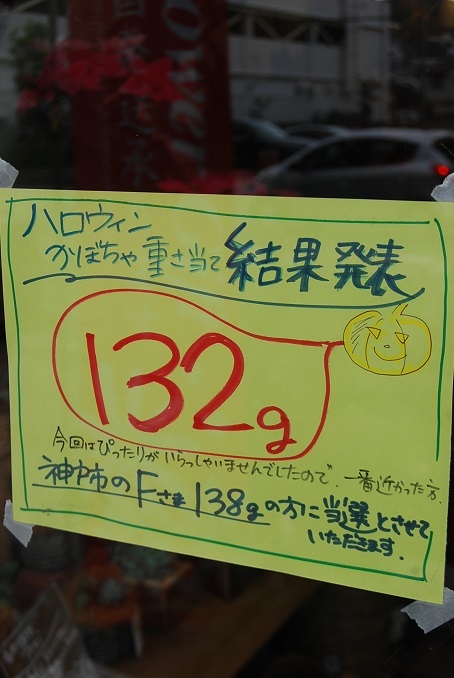 ハロウィン
かぼちゃ重さ当て 結果発表
132g
今回はぴったりがいらっしゃいませんでしたので、一番近かった方、
神戸市のFさま138gの方に当選とさせて
いただきます.
ower